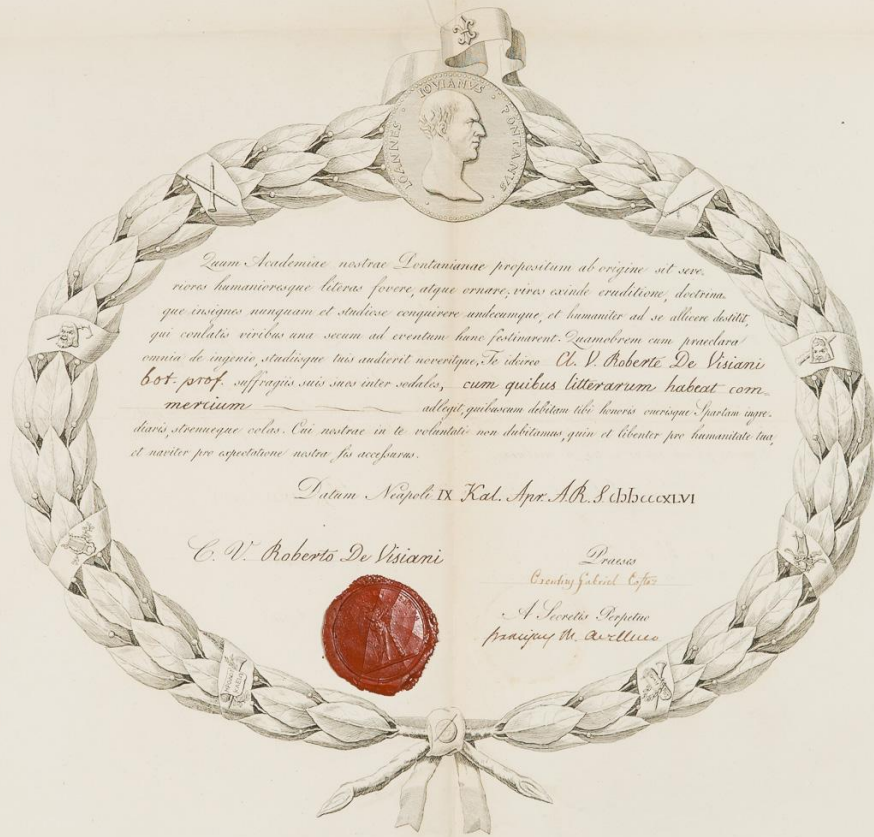 IOANNES · IOVIANVS · PONTANVS
Quum Academiae nostrae Pontanianae propositum ab origine sit seve,
riores humanioresque literas fovere, atque ornare, viros exinde eruditione, doctrina,
que insignes nunquam et studiose conquirere undecumque, et humaniter ad se allicere destitit,
qui conlatis viribus una secum ad eventum hunc festinarent. Quamobrem cum praeclara
omnia de ingenio, studiisque tuis audierit noveritque, Te idcirco Cl. V. Roberte De Visiani
bot. prof. suffragiis suis suos inter sodales, cum quibus litterarum habeat com-
mercium adlegit, quibuscum debitam tibi honoris onerisque Spartam ingre-
diaris, strenueque colas. Cui nostrae in te voluntati non dubitamus, quin et libenter pro humanitate tua,
et naviter pro expectatione nostra sis accessurus.
Datum Neapoli IX Kal. Apr. A.R.S. cIɔIɔcccXLVI
C. V. Roberto De Visiani
Praeses
Gabriel
A Secretis Perpetuo
M. Avellino